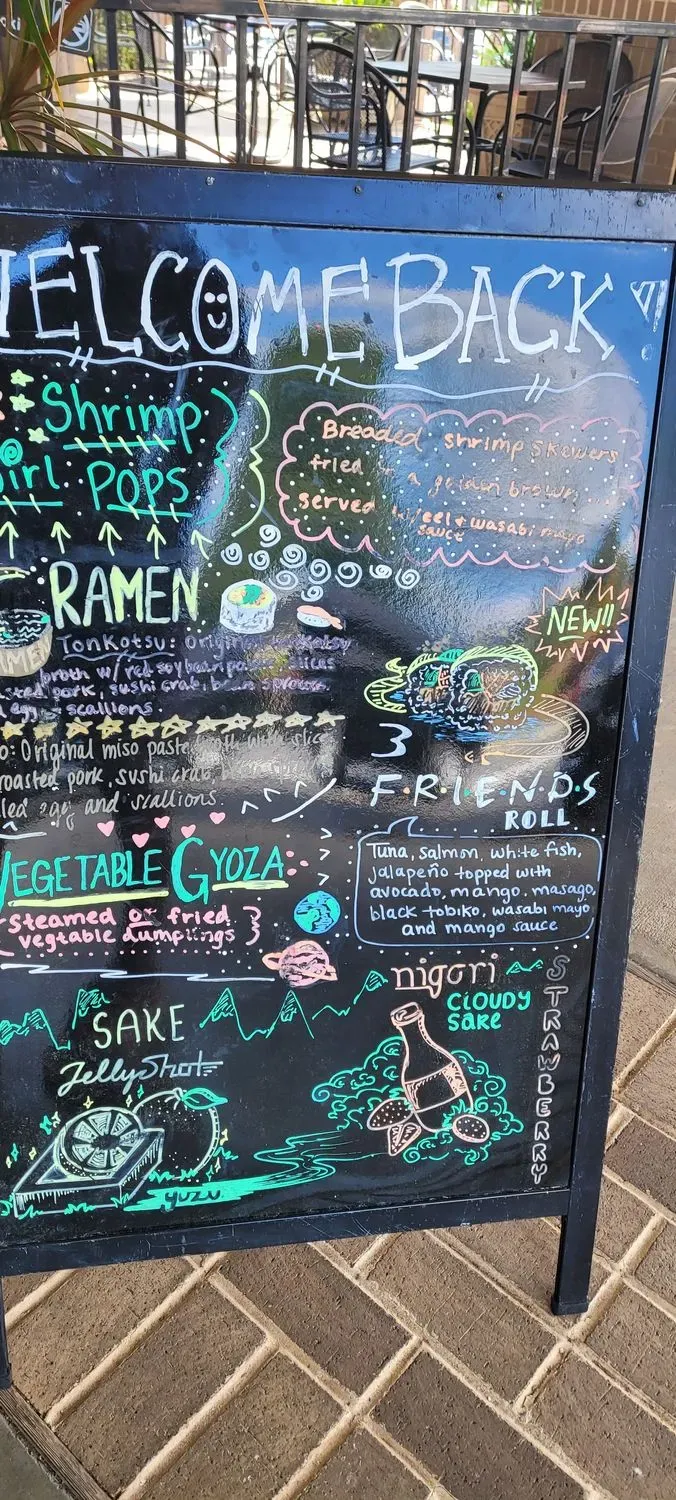 ELCOME BACK
Shrimp
Girl POPS
Breaded shrimp skewers
fried a golden brown
served w/ eel + wasabi mayo
sauce
RAMEN
Tonkotsu: Original
broth w/ red soybean paste, slices
pork, sushi crab, bean sprouts
egg + scallions
NEW!!
o: Original miso paste broth with slic
roasted pork, sushi crab,
led egg and scallions.
3
F·R·I·E·N·D·S
ROLL
Tuna, salmon, white fish,
jalapeño topped with
avocado, mango, masago,
black tobiko, wasabi mayo
and mango sauce
VEGETABLE GYOZA
Steamed or fried
vegtable dumplings
SAKE
Jelly Shots
yuzu
nigori
CLOUDY
sake
STRAWBERRY